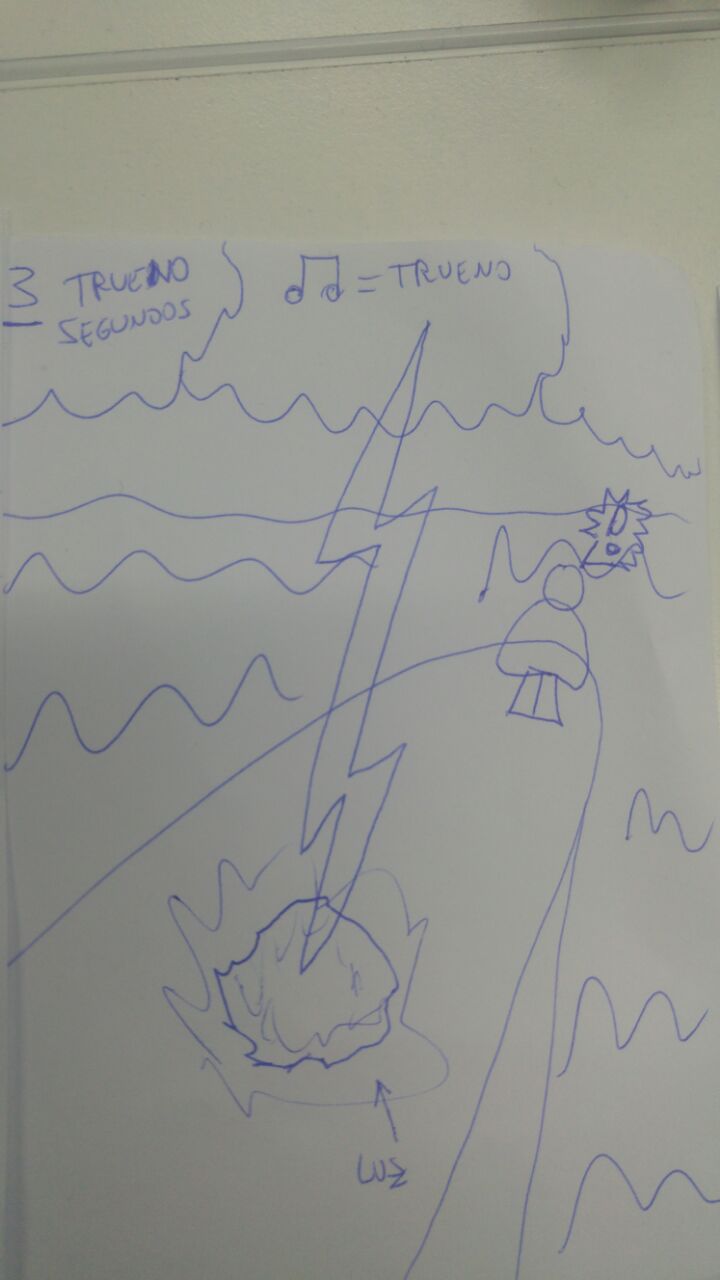 3 TRUENO
SEGUNDOS
♫ = TRUENO
!
LUZ